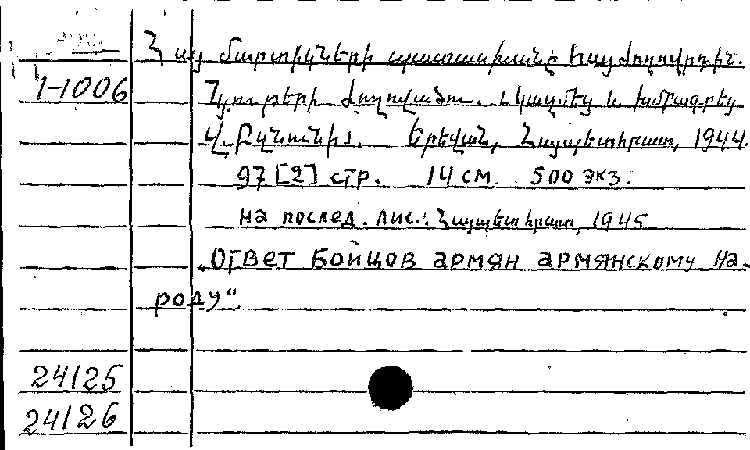 Հայ մարտիկների պատասխանը հայ ժողովրդին.
1-1006 Նյութերի ժողովածու. Կազմեց և խմբագրեց
Վ. Բզնունի. Երևան, Հայպետհրատ, 1944.
97 [2] стр. 14 см 500 экз.
на послед. лис.: Հայպետհրատ, 1945
„Ответ бойцов армян армянскому на-
роду“.
24125
24126